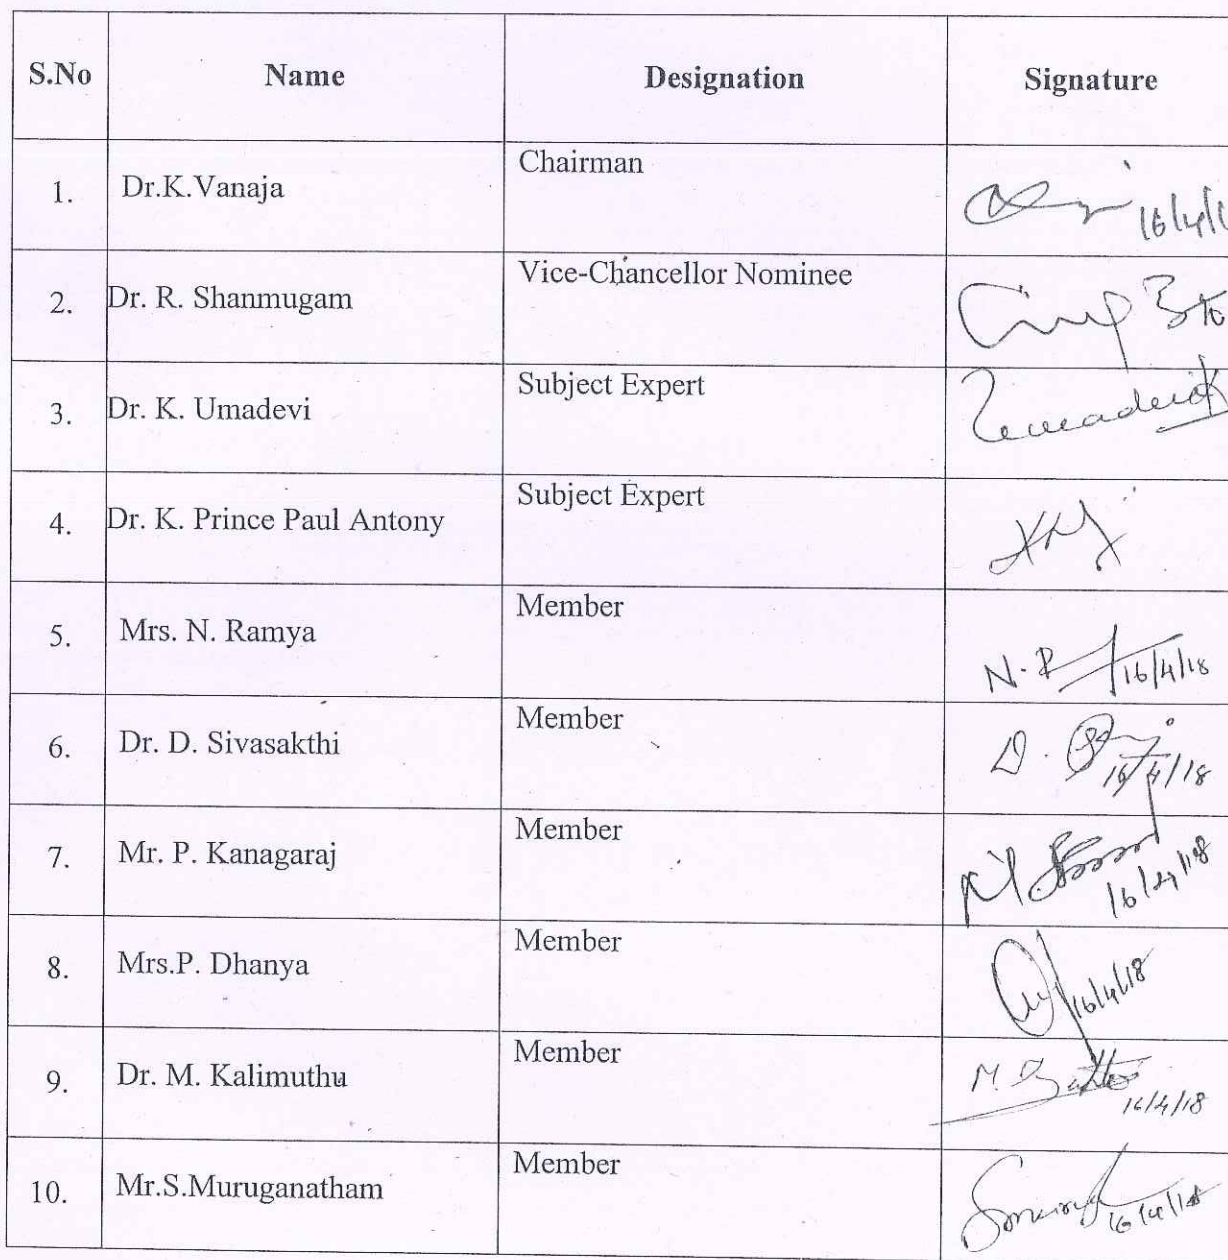 S.No Name Designation Signature
1. Dr.K.Vanaja Chairman
2. Dr. R. Shanmugam Vice-Chancellor Nominee
3. Dr. K. Umadevi Subject Expert
4. Dr. K. Prince Paul Antony Subject Expert
5. Mrs. N. Ramya Member N. R 16/4/18
6. Dr. D. Sivasakthi Member D. 16/4/18
7. Mr. P. Kanagaraj Member 16/4/18
8. Mrs.P. Dhanya Member 16/4/18
9. Dr. M. Kalimuthu Member M. 16/4/18
10. Mr.S.Muruganatham Member 16/4/18